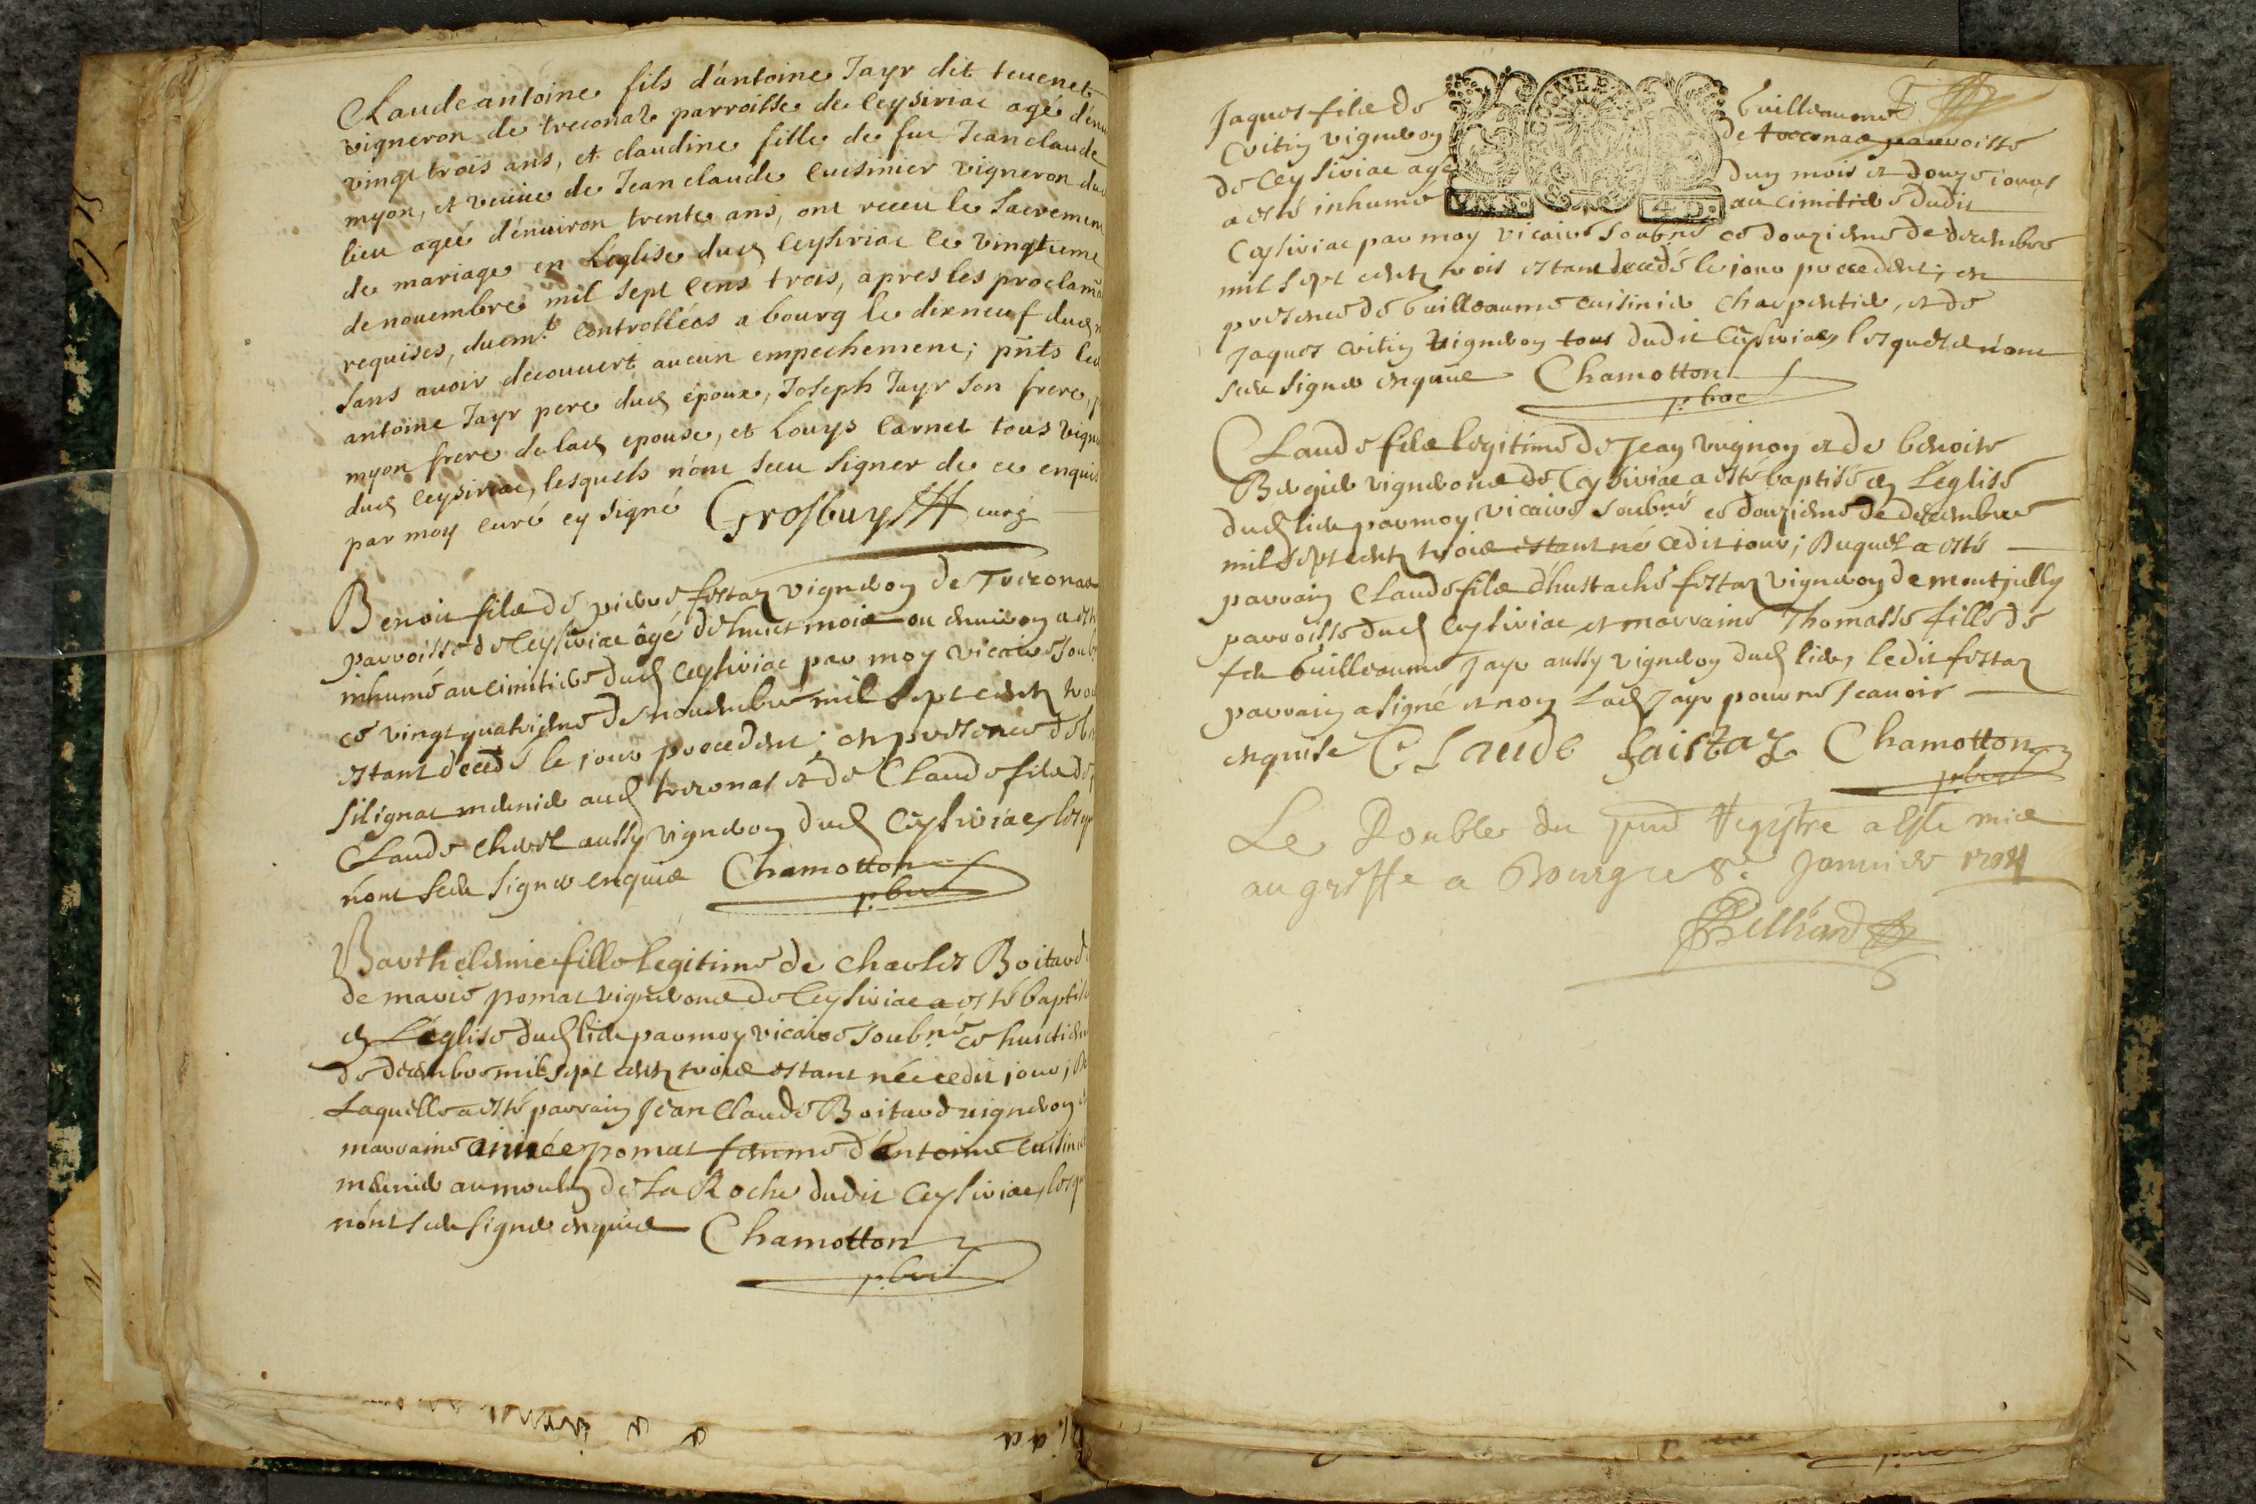 Claude antoine fils d'antoine Jayr dit teuenet
vigneron de treconas parroisse de Ceysiriac agé d'enui
vingt trois ans, et claudine fille de fut Jean claude
myon, et veuue de Jean claude Cuisinier vigneron dud
lieu ageé d'enuiron trente ans, ont receu le Sacrement
de mariage en Leglise dud Ceysiriac le vingtieme
de nouembre mil sept cens trois, apres les proclama
requises, duem.t controlléés a bourg le dixneuf dud
sans auoir decouuert aucun empechement; pñts led
antoine Jayr pere dud epoux, Joseph Jayr son frere,
myon frere de lad epouse, et Louys Carnet tous vign
dud Ceysiriac, lesquels n'ont sceu signer de ce enquis
par moy curé ey signé Grosbuy curé
Benoit fils de pierre festaz vigneron de Treconas
parroisse de Ceysiriac âgé de huict mois ou enuiron a esté
inhumé au cimitiere dud Ceysiriac par moy vicaire soub
ce vingt quatrieme de nouembre mil sept cents troi
estant decedé le jour precedent; en presence de
silignat meunier aud treconas et de Claude fils de
Claude chevrel aussy vigneron dud Ceysiriac, lesq
n'ont sceu signer enquis Chamotton
p:bre
Barthelemie fille legitime de charles Boitard
de marie pomat vignerons de Ceysiriac a esté baptisé
en L'eglise dud lieu par moy vicaire soub.né ce huictiem
de decembre mil sept cents trois estant née cedit jour;
Laquelle a esté parrain Jean Claude Boitard vigneron
marraine aimée pomat femme d'Antoine Cuisin
meunier au moulin de La Roche dudit Ceysiriac, lesq
n'ont sceu signer enquis Chamotton
p:bre
Jaques fils de Guilleaume
Critin vigneron de treconas parroisse
de Ceysiriac agé d'un mois et douze jours
a esté inhumé au cimitiere dudit
GENER
VN S. 4 D.
Ceysiriac par moy vicaire soub.né ce douzieme de decembre
mil sept cents trois estant decedé le jour precedent; en
presence de Guilleaume cuisinier charpentier, et de
Jaques critin vigneron tous dudit Ceysiriac, lesquels n'ont
sceu signer enquis Chamotton
p:bre
Claude fils legitime de Jean vugnon et de benoite
Bergier vignerons de Ceysiriac a esté baptisé en L'eglise
dud lieu par moy vicaire soub.né ce douzieme de decembre
mil sept cents trois estant né cedit jour; Duquel a esté
parrain Claude fils d'hustache festaz vigneron de montjully
parroisse dud Ceysiriac et marraine Thomasse fille de
feu Guilleaume Jayr aussy vigneron dud lieu, ledit festaz
parrain a signé et non Lad Jayr pour ne scauoir
enquise Claude faistaz Chamotton
p:bre
Le Double du pnt Registre a esté mis
au greffe a Bourg ce 8e Januier 1704